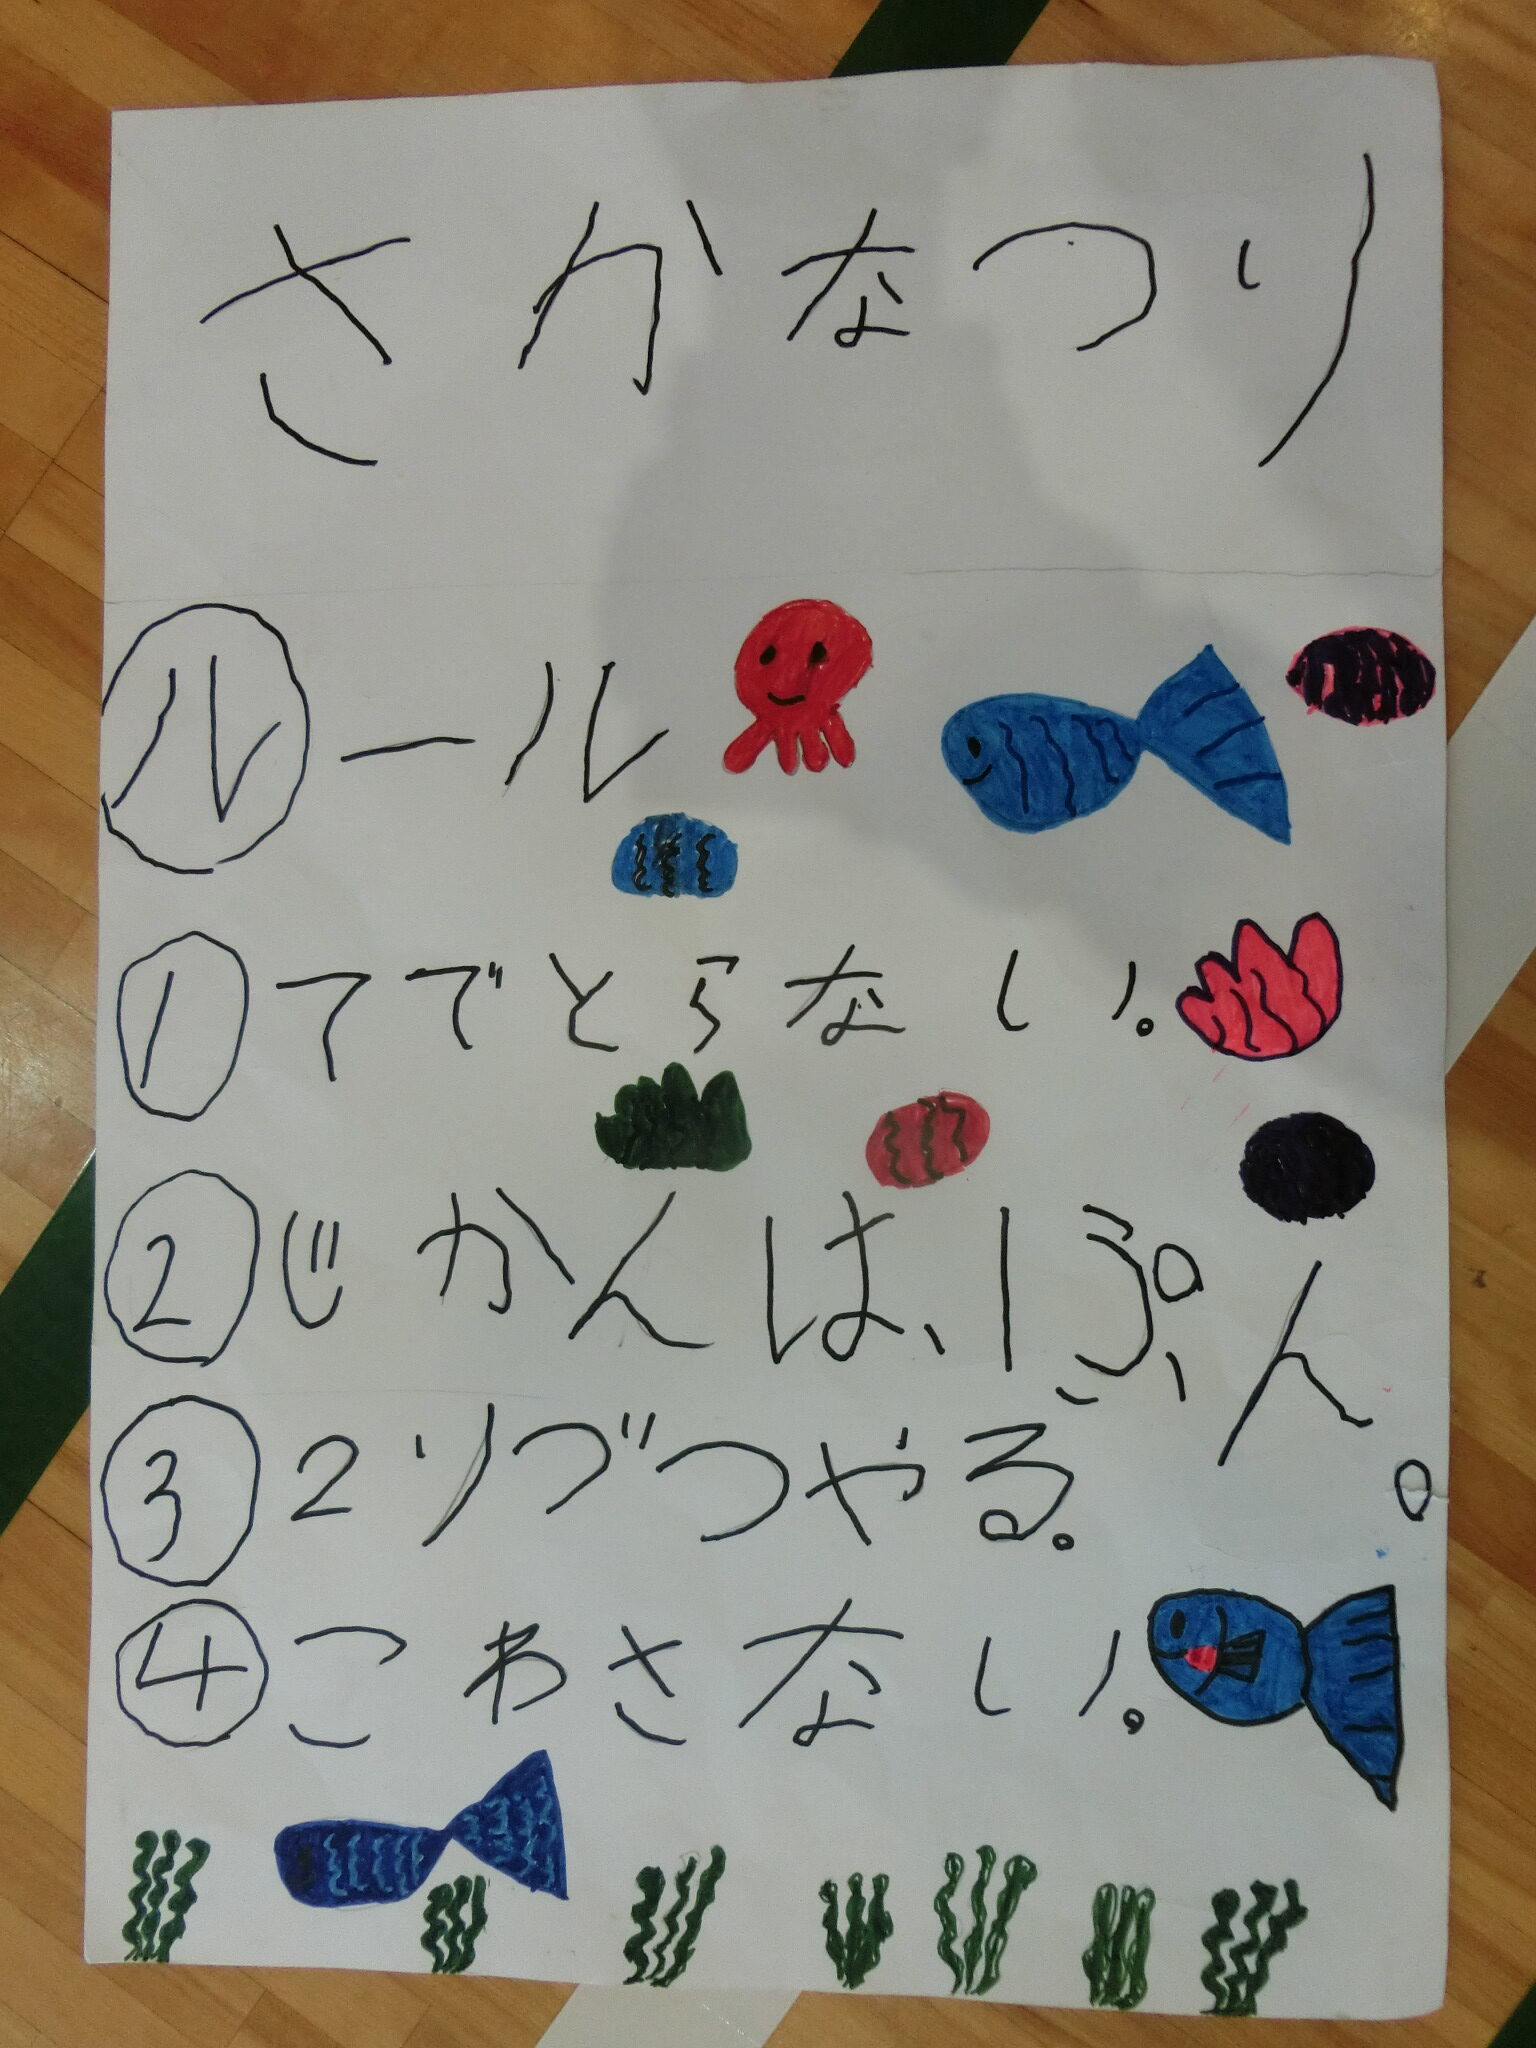 さかなつり
ルール
① てでとらない。
② じかんは、1ぷん。
③ 2りづつやる。
④ こわさない。